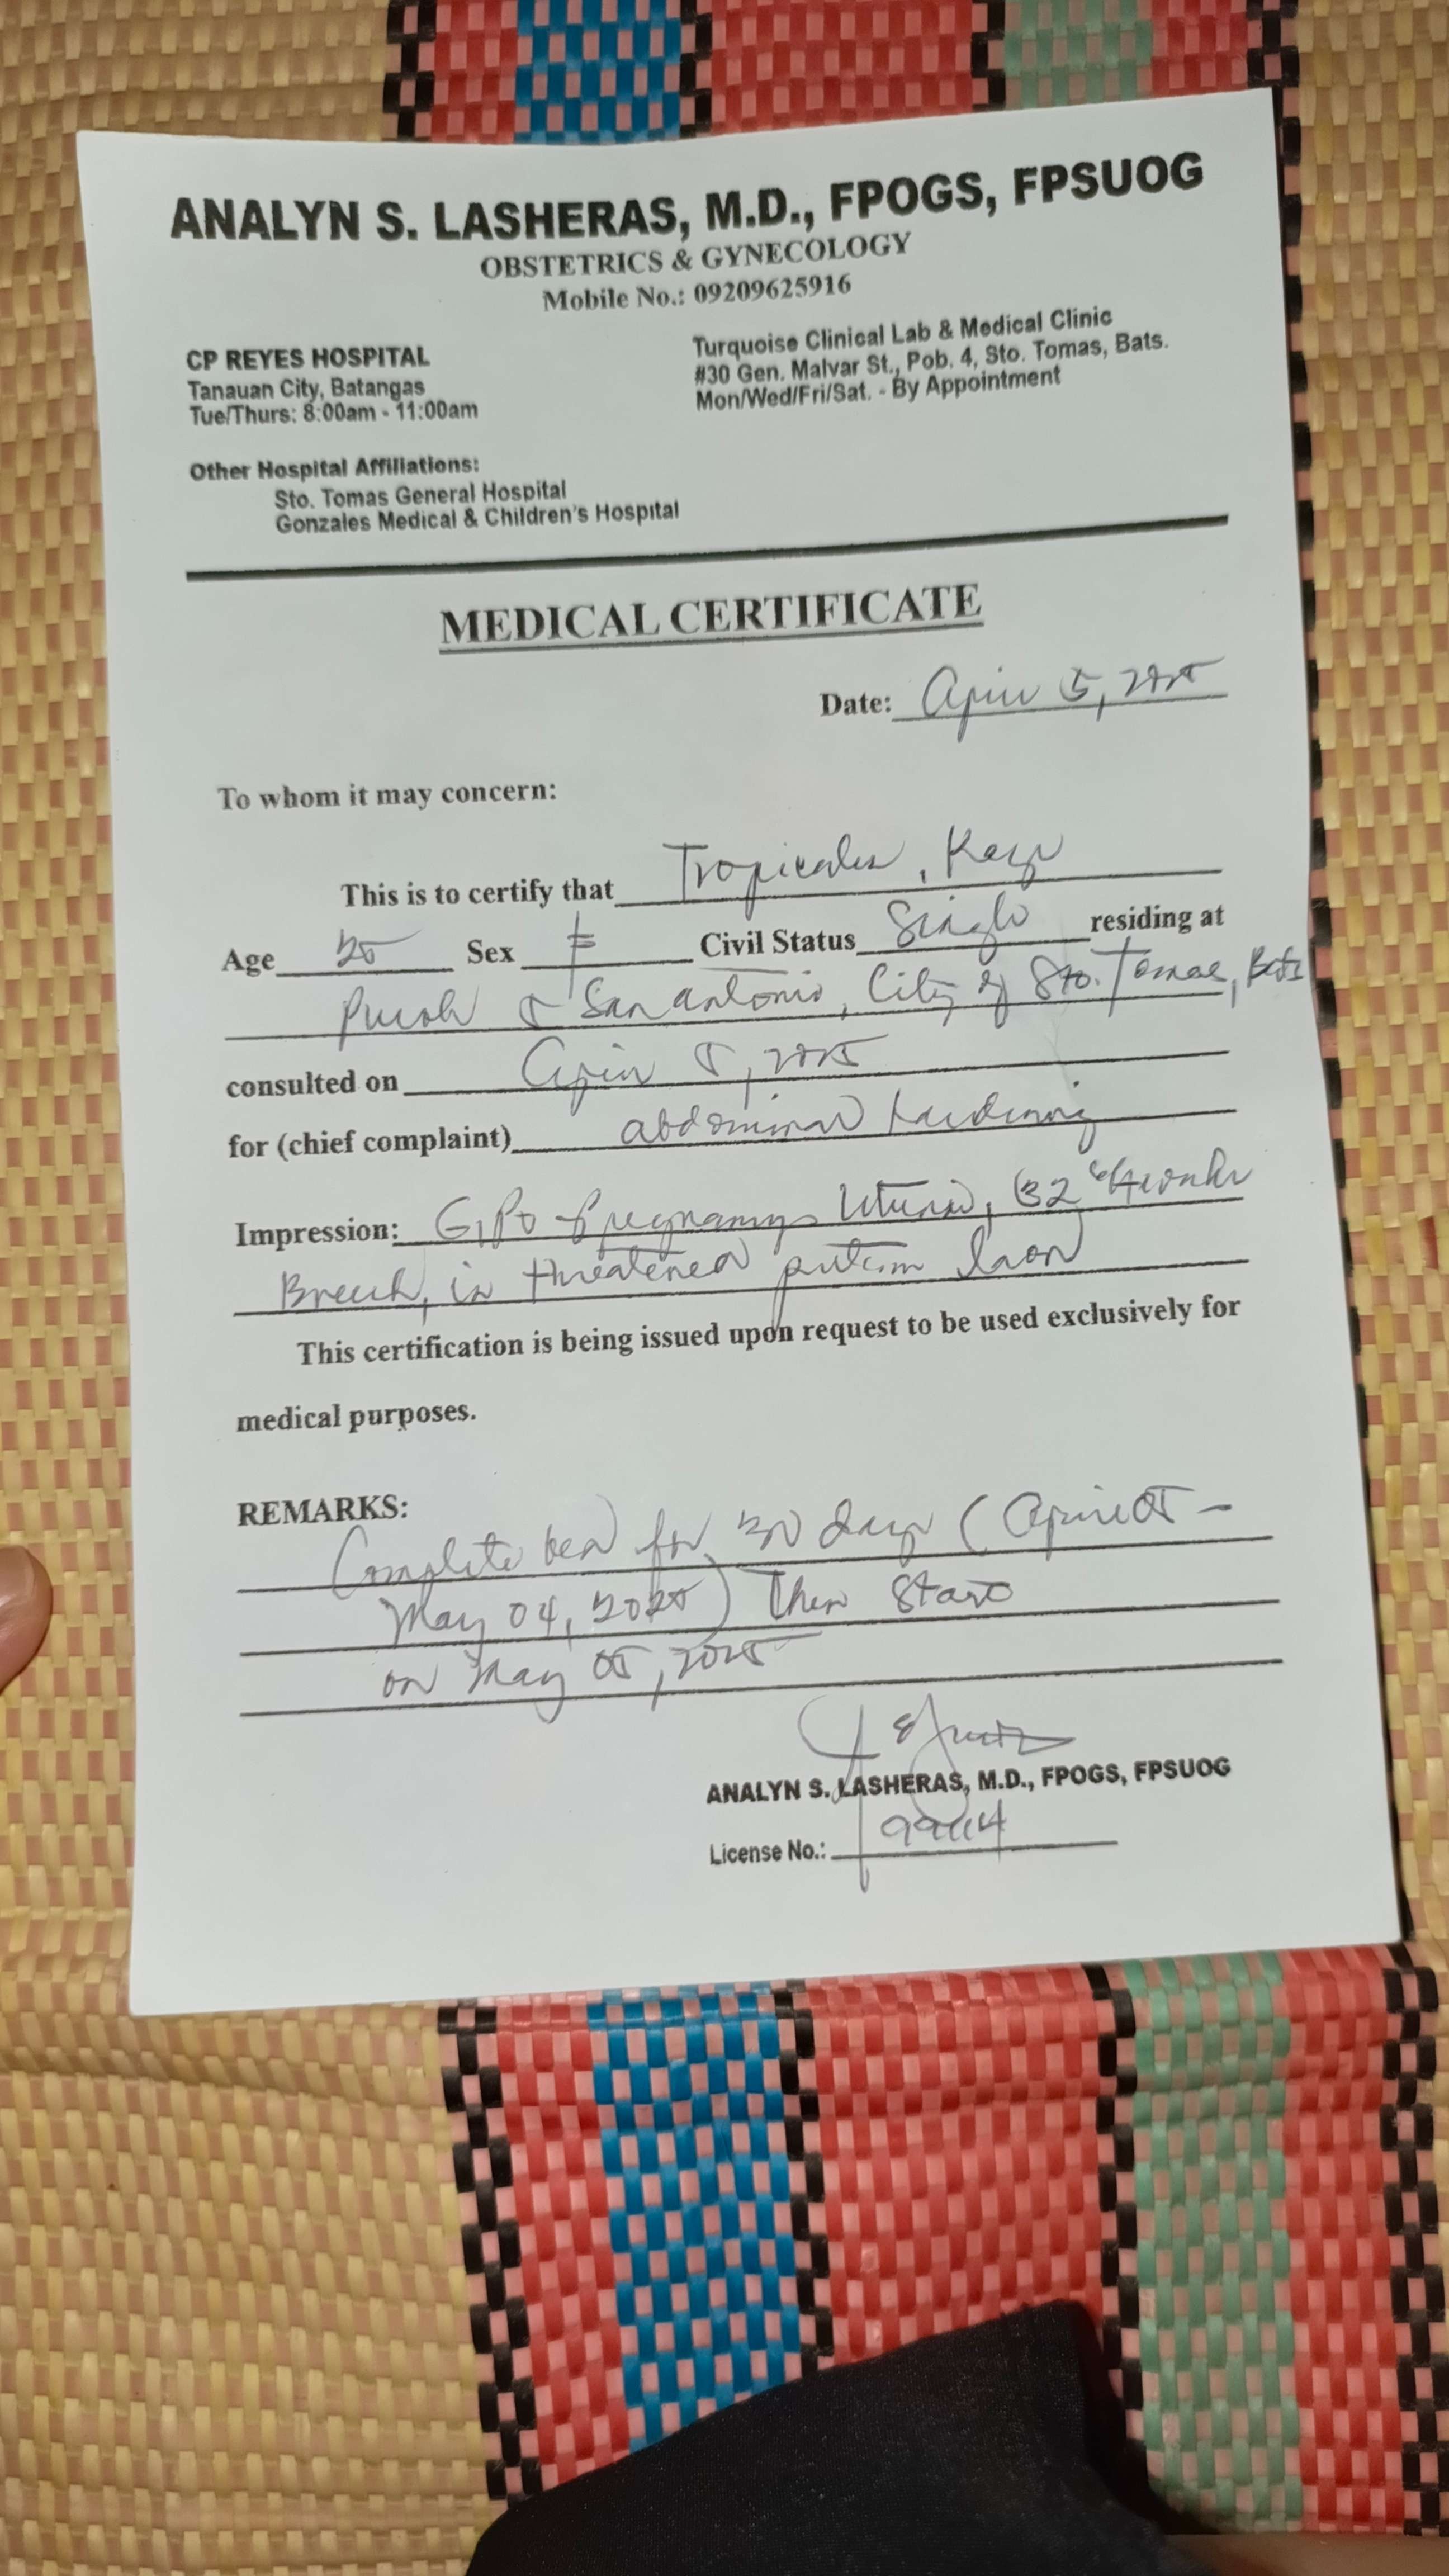 ANALYN S. LASHERAS, M.D., FPOGS, FPSUOG
OBSTETRICS & GYNECOLOGY
Mobile No.: 09209625916
CP REYES HOSPITAL
Tanauan City, Batangas
Tue/Thurs: 8:00am - 11:00am
Turquoise Clinical Lab & Medical Clinic
#30 Gen. Malvar St., Pob. 4, Sto. Tomas, Bats.
Mon/Wed/Fri/Sat. - By Appointment
Other Hospital Affiliations:
Sto. Tomas General Hospital
Gonzales Medical & Children's Hospital
MEDICAL CERTIFICATE
Date: April 5, 2025
To whom it may concern:
This is to certify that Tropicales,
Age 25 Sex F Civil Status Single residing at
Purok 5 San Antonio, City of Sto. Tomas, Bats
consulted on April 5, 2025
for (chief complaint) abdominal hardening
Impression: G1P0 Pregnancy Uterine, 32 weeks
Breech, in threatened preterm labor
This certification is being issued upon request to be used exclusively for
medical purposes.
REMARKS:
Complete bed for 30 days (April 05 -
May 04, 2025) Then Start
on May 05, 2025
ANALYN S. LASHERAS, M.D., FPOGS, FPSUOG
License No.: